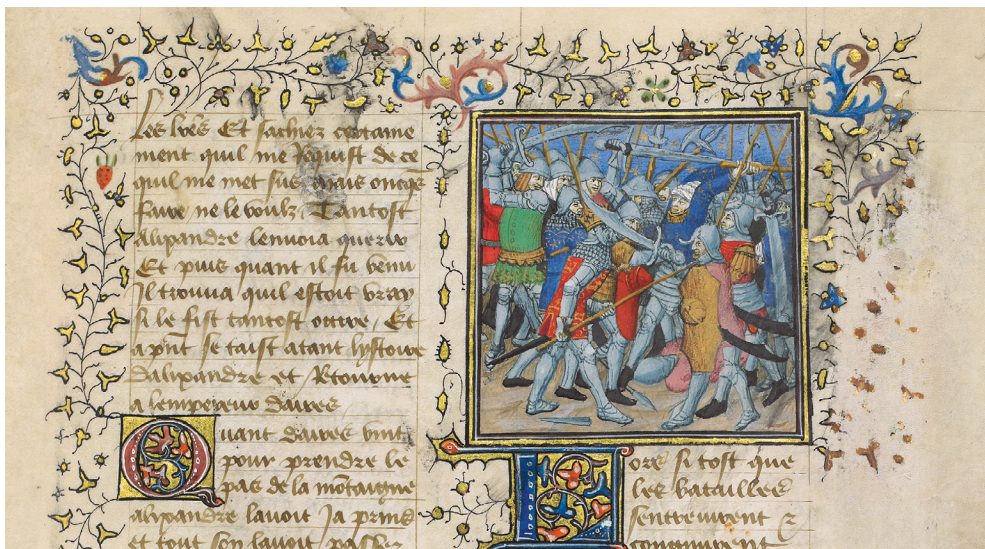 les lres Et sachiez certaine
ment quil me Requist de ce
quil me met sus mais oncqs
faire ne le voulz Tantost
Alixandre lenuoia querir
Et puis quant il fu venu
Il trouua quil estoit vray
si le fist tantost occire Et
a pnt se taist atant lystoire
dalixandre et Retourne
a lempereur daires
Quant daires vint
pour prendre le
pas de la motaigne
alixandre lauoit Ja prins
et tout son lauoit passer
Lors si tost que
les batailles
sentreuirent &